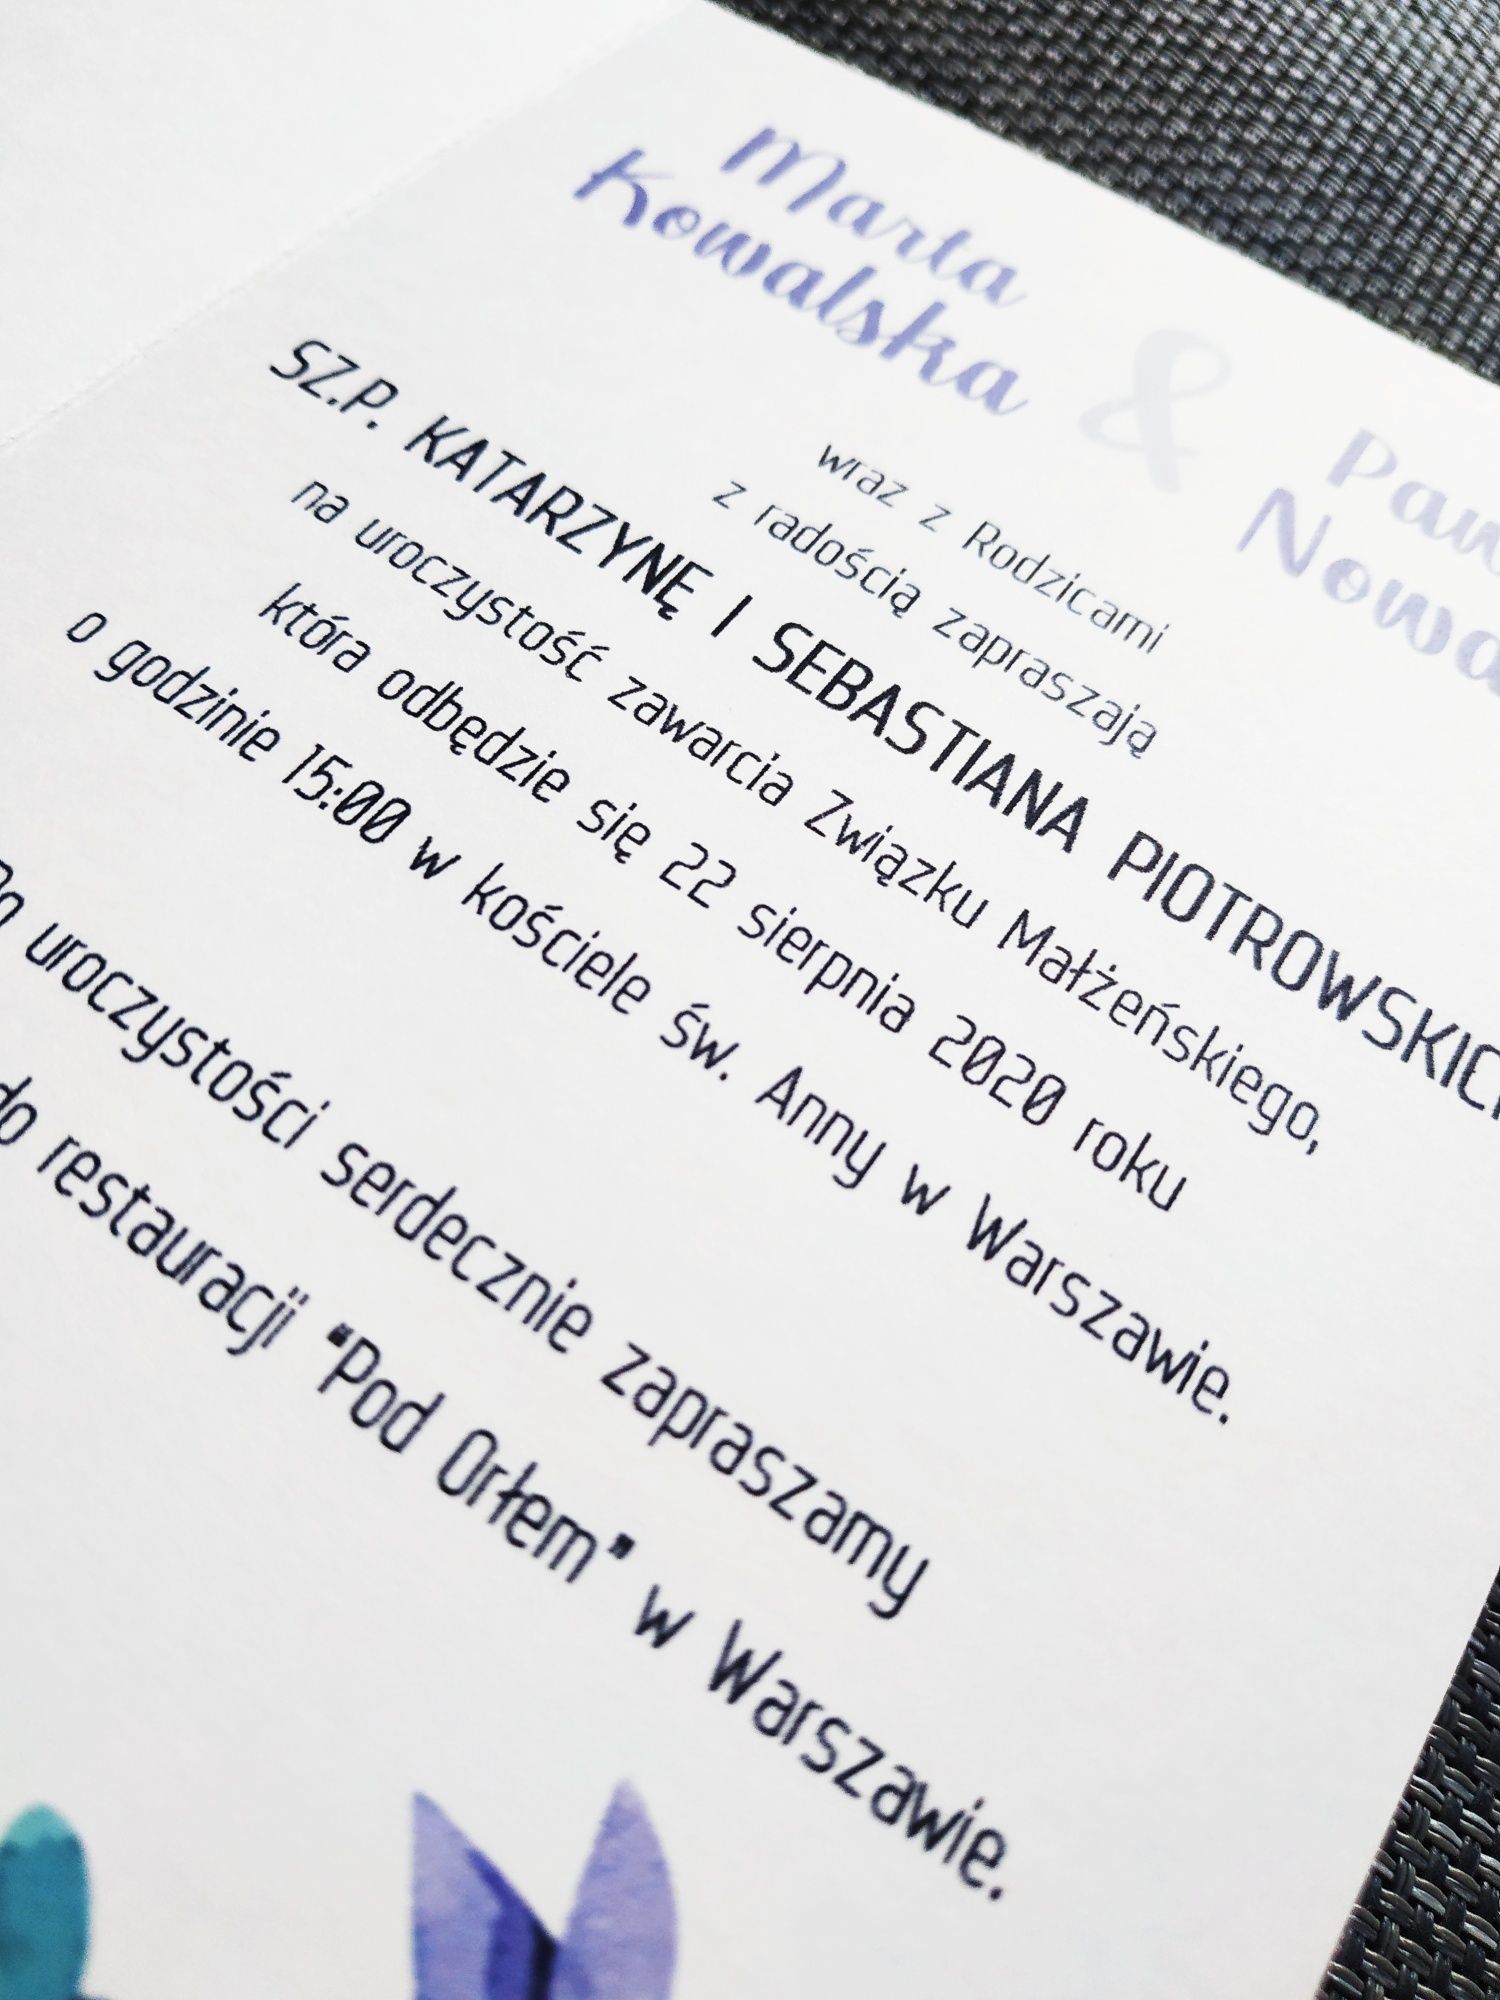 Marta
Kowalska
&
wraz z Rodzicami
z radością zapraszają
SZ.P. KATARZYNĘ I SEBASTIANA
na uroczystość zawarcia Związku Małżeńskiego,
która odbędzie się 22 sierpnia 2020 roku
o godzinie 15:00 w kościele św. Anny w Warszawie.
Po uroczystości serdecznie zapraszamy
do restauracji "Pod Orłem" w Warszawie.